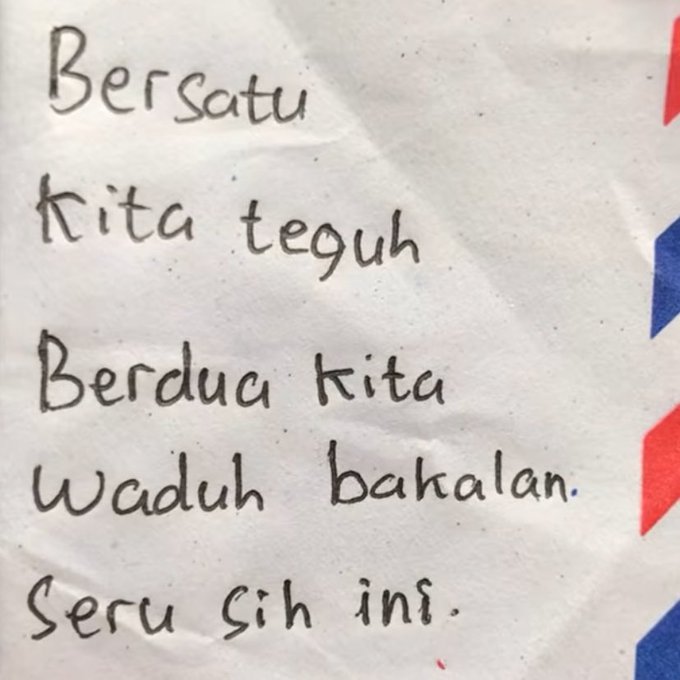 Bersatu
Kita teguh
Berdua kita
waduh bakalan.
Seru sih ini.